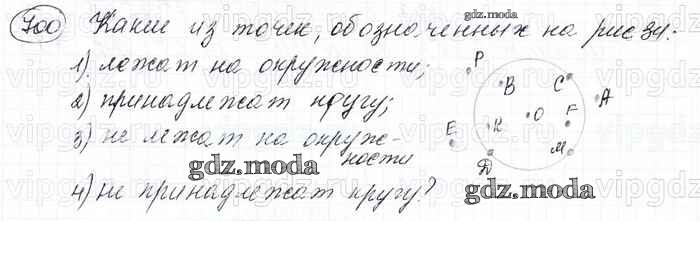 700 Какие из точек, обозначенных на рис 34:
1) лежат на окружности;
2) принадлежат кругу;
3) не лежат на окруж-
ности
4) не принадлежат кругу?
P
B
C
A
O
F
K
E
D
M
gdz.moda
gdz.moda
vipgdz